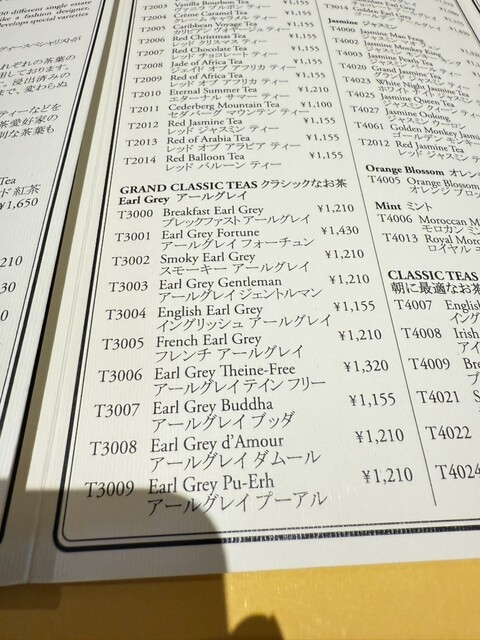 30 different single estate
like a fashion designer
develops special varieties
ティースペシャリストが
Tea
ド 紅茶
¥1,650
T2003 Vanilla Bourbon Tea ¥1,155
ヴァニラ ブルボン ティー
T2004 Crème Caramel Tea ¥1,155
クレーム キャラメル ティー
T2005 Caribbean Voyage Tea ¥1,155
カリビアン ヴォヤージュ ティー
T2006 Red Christmas Tea ¥1,155
レッド クリスマス ティー
T2007 Red Chocolate Tea ¥1,155
レッド チョコレート ティー
T2008 Jade of Africa Tea ¥1,155
ジェイド オブ アフリカ ティー
T2009 Red of Africa Tea ¥1,155
レッド オブ アフリカ ティー
T2010 Eternal Summer Tea ¥1,210
エターナル サマー ティー
T2011 Cederberg Mountain Tea ¥1,100
セダバーグ マウンテン ティー
T2012 Red Jasmine Tea ¥1,155
レッド ジャスミン ティー
T2013 Red of Arabia Tea ¥1,155
レッド オブ アラビア ティー
T2014 Red Balloon Tea ¥1,155
レッド バルーン ティー
GRAND CLASSIC TEAS クラシックなお茶
Earl Grey アールグレイ
T3000 Breakfast Earl Grey ¥1,210
ブレックファスト アールグレイ
T3001 Earl Grey Fortune ¥1,430
アールグレイ フォーチュン
T3002 Smoky Earl Grey ¥1,210
スモーキー アールグレイ
T3003 Earl Grey Gentleman ¥1,210
アールグレイ ジェントルマン
T3004 English Earl Grey ¥1,155
イングリッシュ アールグレイ
T3005 French Earl Grey ¥1,210
フレンチ アールグレイ
T3006 Earl Grey Theine-Free ¥1,320
アールグレイ テイン フリー
T3007 Earl Grey Buddha ¥1,155
アールグレイ ブッダ
T3008 Earl Grey d'Amour ¥1,210
アールグレイ ダムール
T3009 Earl Grey Pu-Erh ¥1,210
アールグレイ プーアル
T3014
Jasmine ジャスミン
T4000 Jasmine Mao Feng
T4002 Jasmine Monkey
T4020 Grand Jasmine Tea
T4023 White Night Jasmine
ホワイト ナイト ジャスミン
T4025 Jasmine Queen Tea
T4027 Jasmine Oolong
ジャスミン ウーロン
T4061 Golden Monkey Jasmine
ゴールデン モンキー
T2012 Red Jasmine Tea
レッド ジャスミン ティー
Orange Blossom オレンジ
T4005 Orange Blossom
オレンジ ブロッ
Mint ミント
T4006 Moroccan M
モロカン ミン
T4013 Royal Moro
ロイヤル
CLASSIC TEAS
朝に最適なお茶
T4007 English
T4008 Irish
T4009 Bre
T4021
T4022
T4024